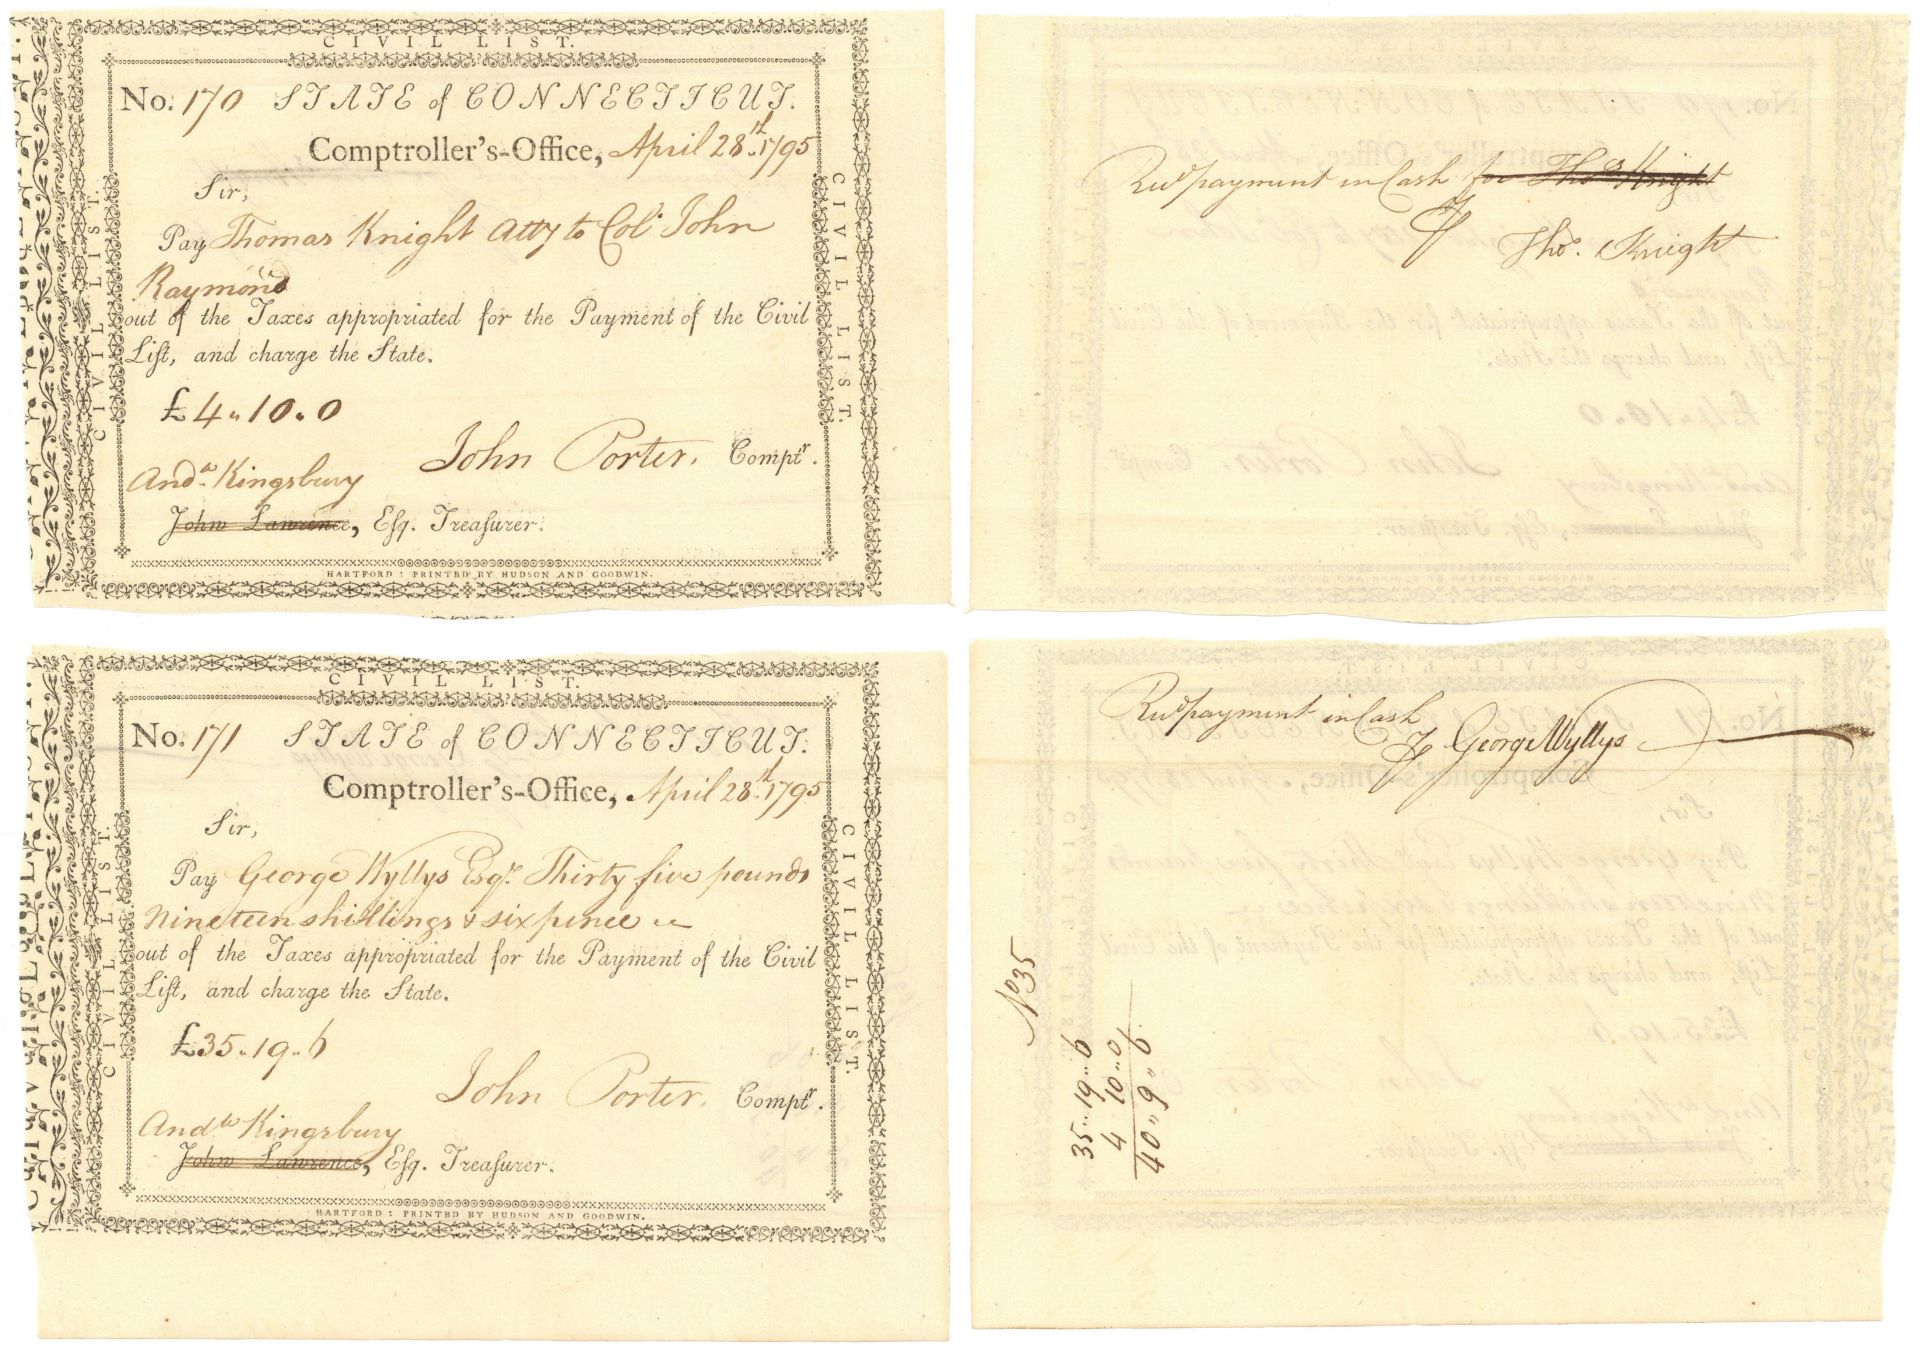 CIVIL LIST.
No. 170 STATE of CONNECTICUT.
Comptroller's-Office, April 28th. 1795
Sir,
Pay Thomas Knight Atty to Col. John
Raymond
out of the Taxes appropriated for the Payment of the Civil
List, and charge the State.
£4 " 10 " 0
John Porter, Comptr.
Andw. Kingsbury
John Lawrence, Esq. Treasurer.
HARTFORD: PRINTED BY HUDSON AND GOODWIN.
CIVIL LIST.
CIVIL LIST.
Recd payment in Cash for Thos Knight
Thos. Knight
CIVIL LIST.
No. 171 STATE of CONNECTICUT.
Comptroller's-Office, April 28th. 1795
Sir,
Pay George Wyllys Esqr. Thirty five pounds
Nineteen shillings & six pence
out of the Taxes appropriated for the Payment of the Civil
List, and charge the State.
£35 " 19 " 6
John Porter, Comptr.
Andw Kingsbury
John Lawrence, Esq. Treasurer.
HARTFORD: PRINTED BY HUDSON AND GOODWIN.
CIVIL LIST.
CIVIL LIST.
Recd payment in Cash
George Wyllys
No 35
35 " 19 " 6
4 10 " 0
40 " 9 " 6